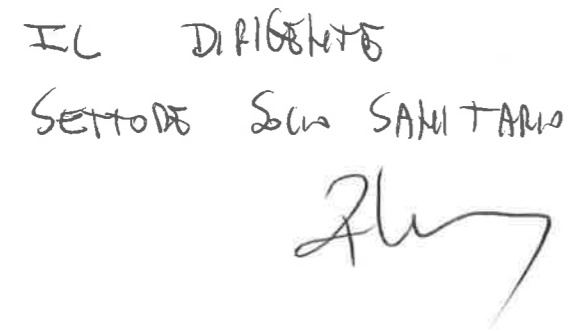 IL DIRIGENTE
SETTORE SOCIO SANITARIO